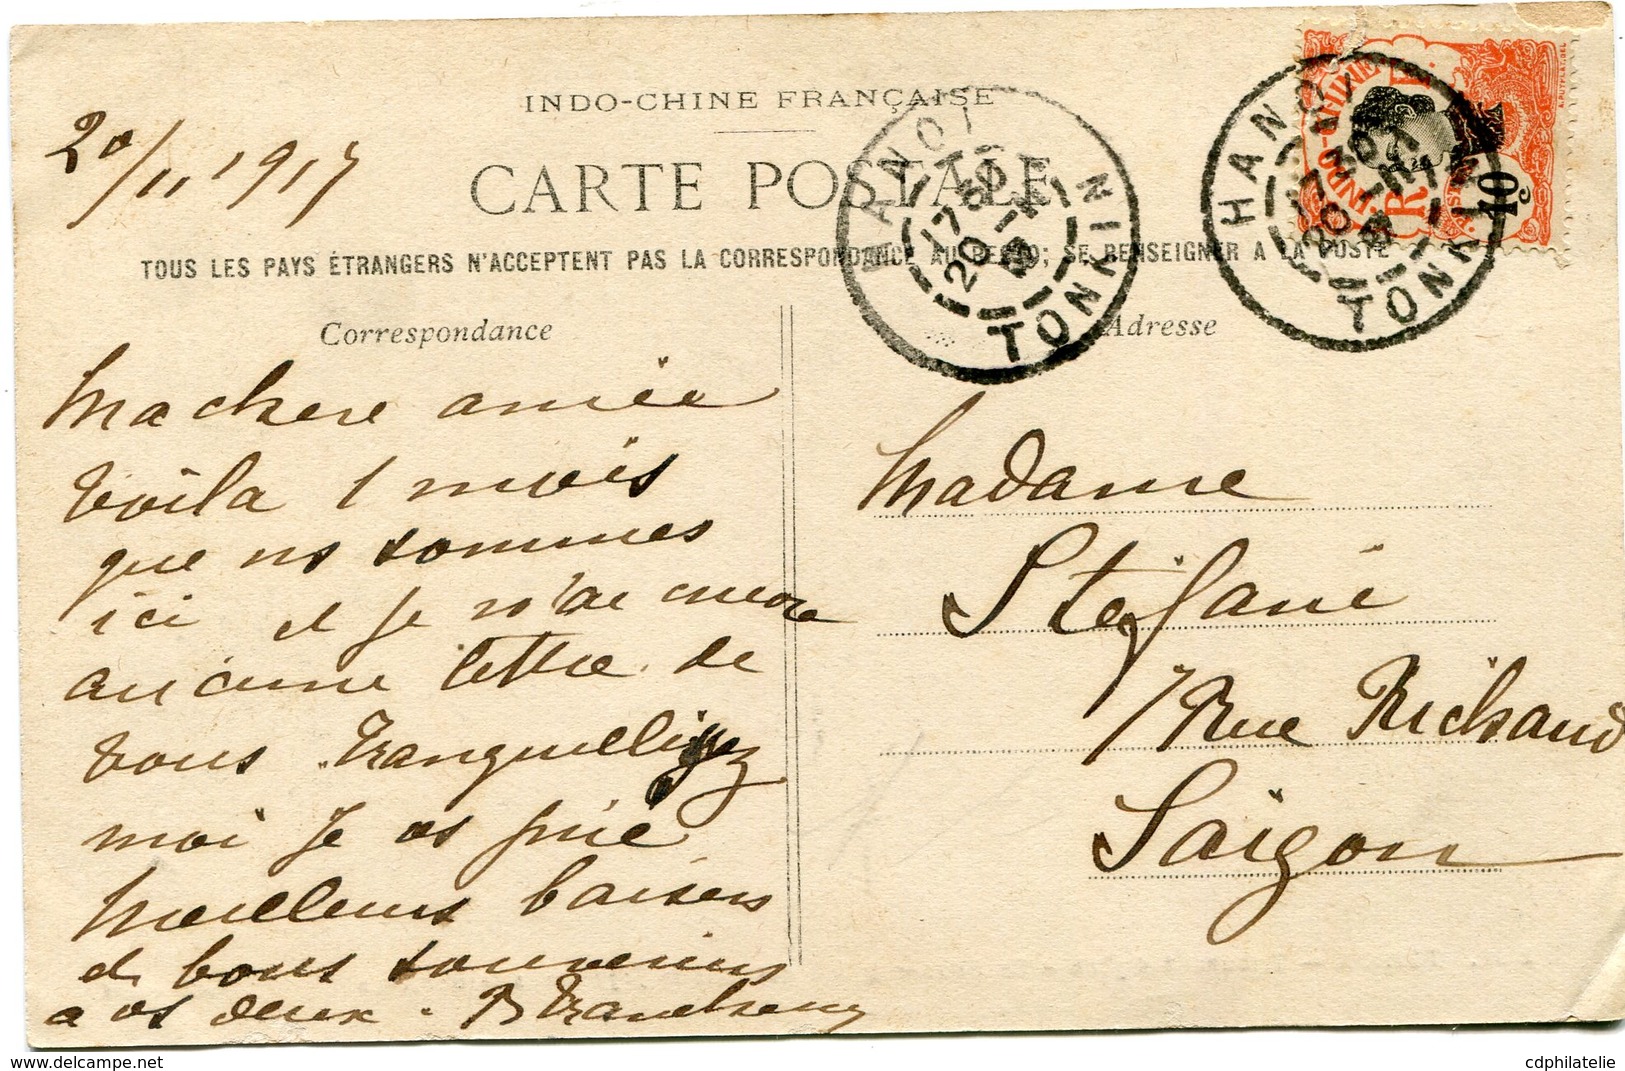 INDO-CHINE FRANÇAISE
20/11 1917
CARTE POSTALE
TOUS LES PAYS ÉTRANGERS N'ACCEPTENT PAS LA CORRESPONDANCE AU RECTO; SE RENSEIGNER A LA POSTE
HANOI 17 30 20 TONKIN
HANOI 17 30 20 TONKIN
INDO-CHINE
10 c
Correspondance
Ma chere amiée
Voila 1 mois
que ns sommes
ici et je n'ai encore
aucune lettre de
vous tranquillisez
moi je vs prie
Meilleurs baisers
et bons souvenirs
a vs deux.
Adresse
Madame
Stefani
7 Rue Richaud
Saigon
www.delcampe.net
cdphilatelie